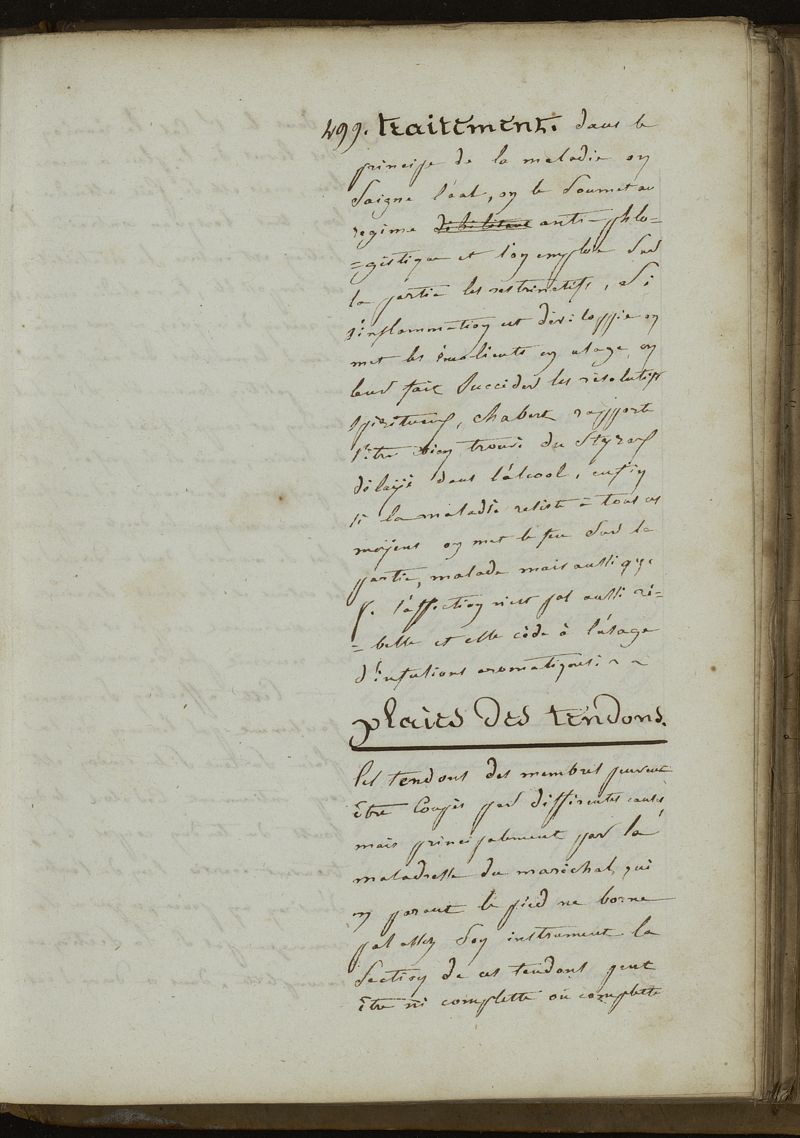 499. traitement. dans le
principe de la maladie on
saigne l'eat, on le soumet au
regime debilitant anti-phlo=
=gistique et l'on emploie sur
la partie les restrinctifs, si
l'inflammation est développée on
met les émolients en usage, on
leur fait succéder les résolutifs
spiritueux, chabert rapporte
s'être bien trouvé du styrax
délayé dans l'alcool, enfin
si la maladie resiste à tous ces
moyens on met le feu sur la
partie, malade mais aussi qq.
f. l'affection n'est pas aussi ré=
=belle et elle cède à l'usage
d'infusions aromatiques. ~ ~
plaies des tendons.
les tendons des membres peuvent
être coupés par differentes causes
mais principalement par la
maladresse du maréchal, qui
en parant le pied ne borne
pas assez son instrument la
section de ces tendons peut
être ni complette ou complette